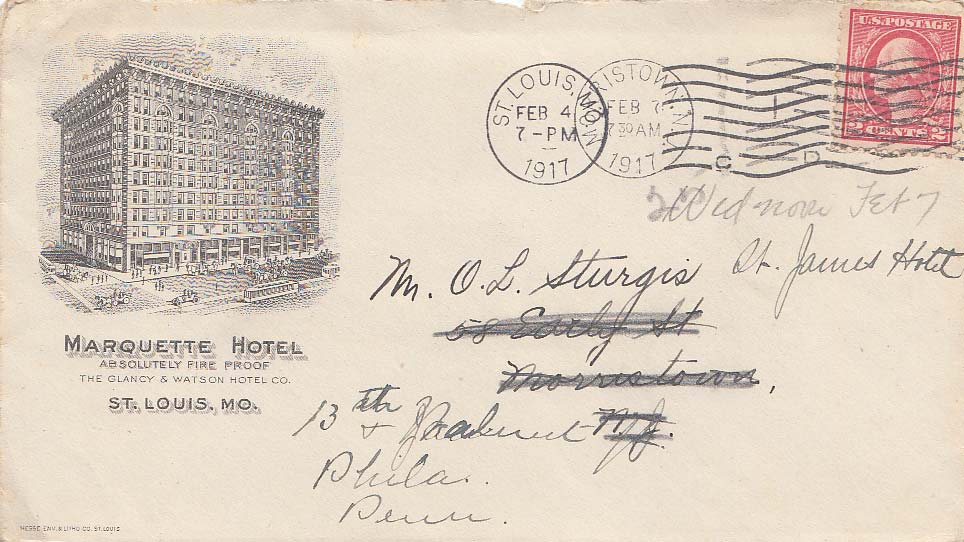 MARQUETTE HOTEL
ABSOLUTELY FIRE PROOF
THE GLANCY & WATSON HOTEL CO.
ST. LOUIS, MO.
ST. LOUIS, MO.
FEB 4
7-PM
1917
RISTOWN, N.J.
FEB 7
7 30 AM
1917
C D
U.S. POSTAGE
2 CENTS 2
Wed noon Feb 7
Mr. O.L. Sturgis
St. James Hotel
58 Early St
Morristown,
N.J.
13th
&
Phila.
Penn.
HESSE ENV. & LITHO CO. ST. LOUIS